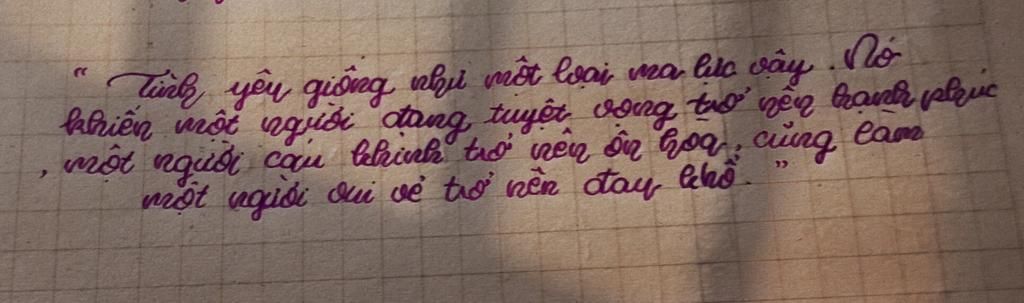 “ Tình yêu giống như một loại ma lực vậy. Nó
khiến một người đang tuyệt vọng trở nên hạnh phúc
, một người cáu khỉnh trở nên ôn hoà, cũng làm
một người vui vẻ trở nên đau khổ. ”